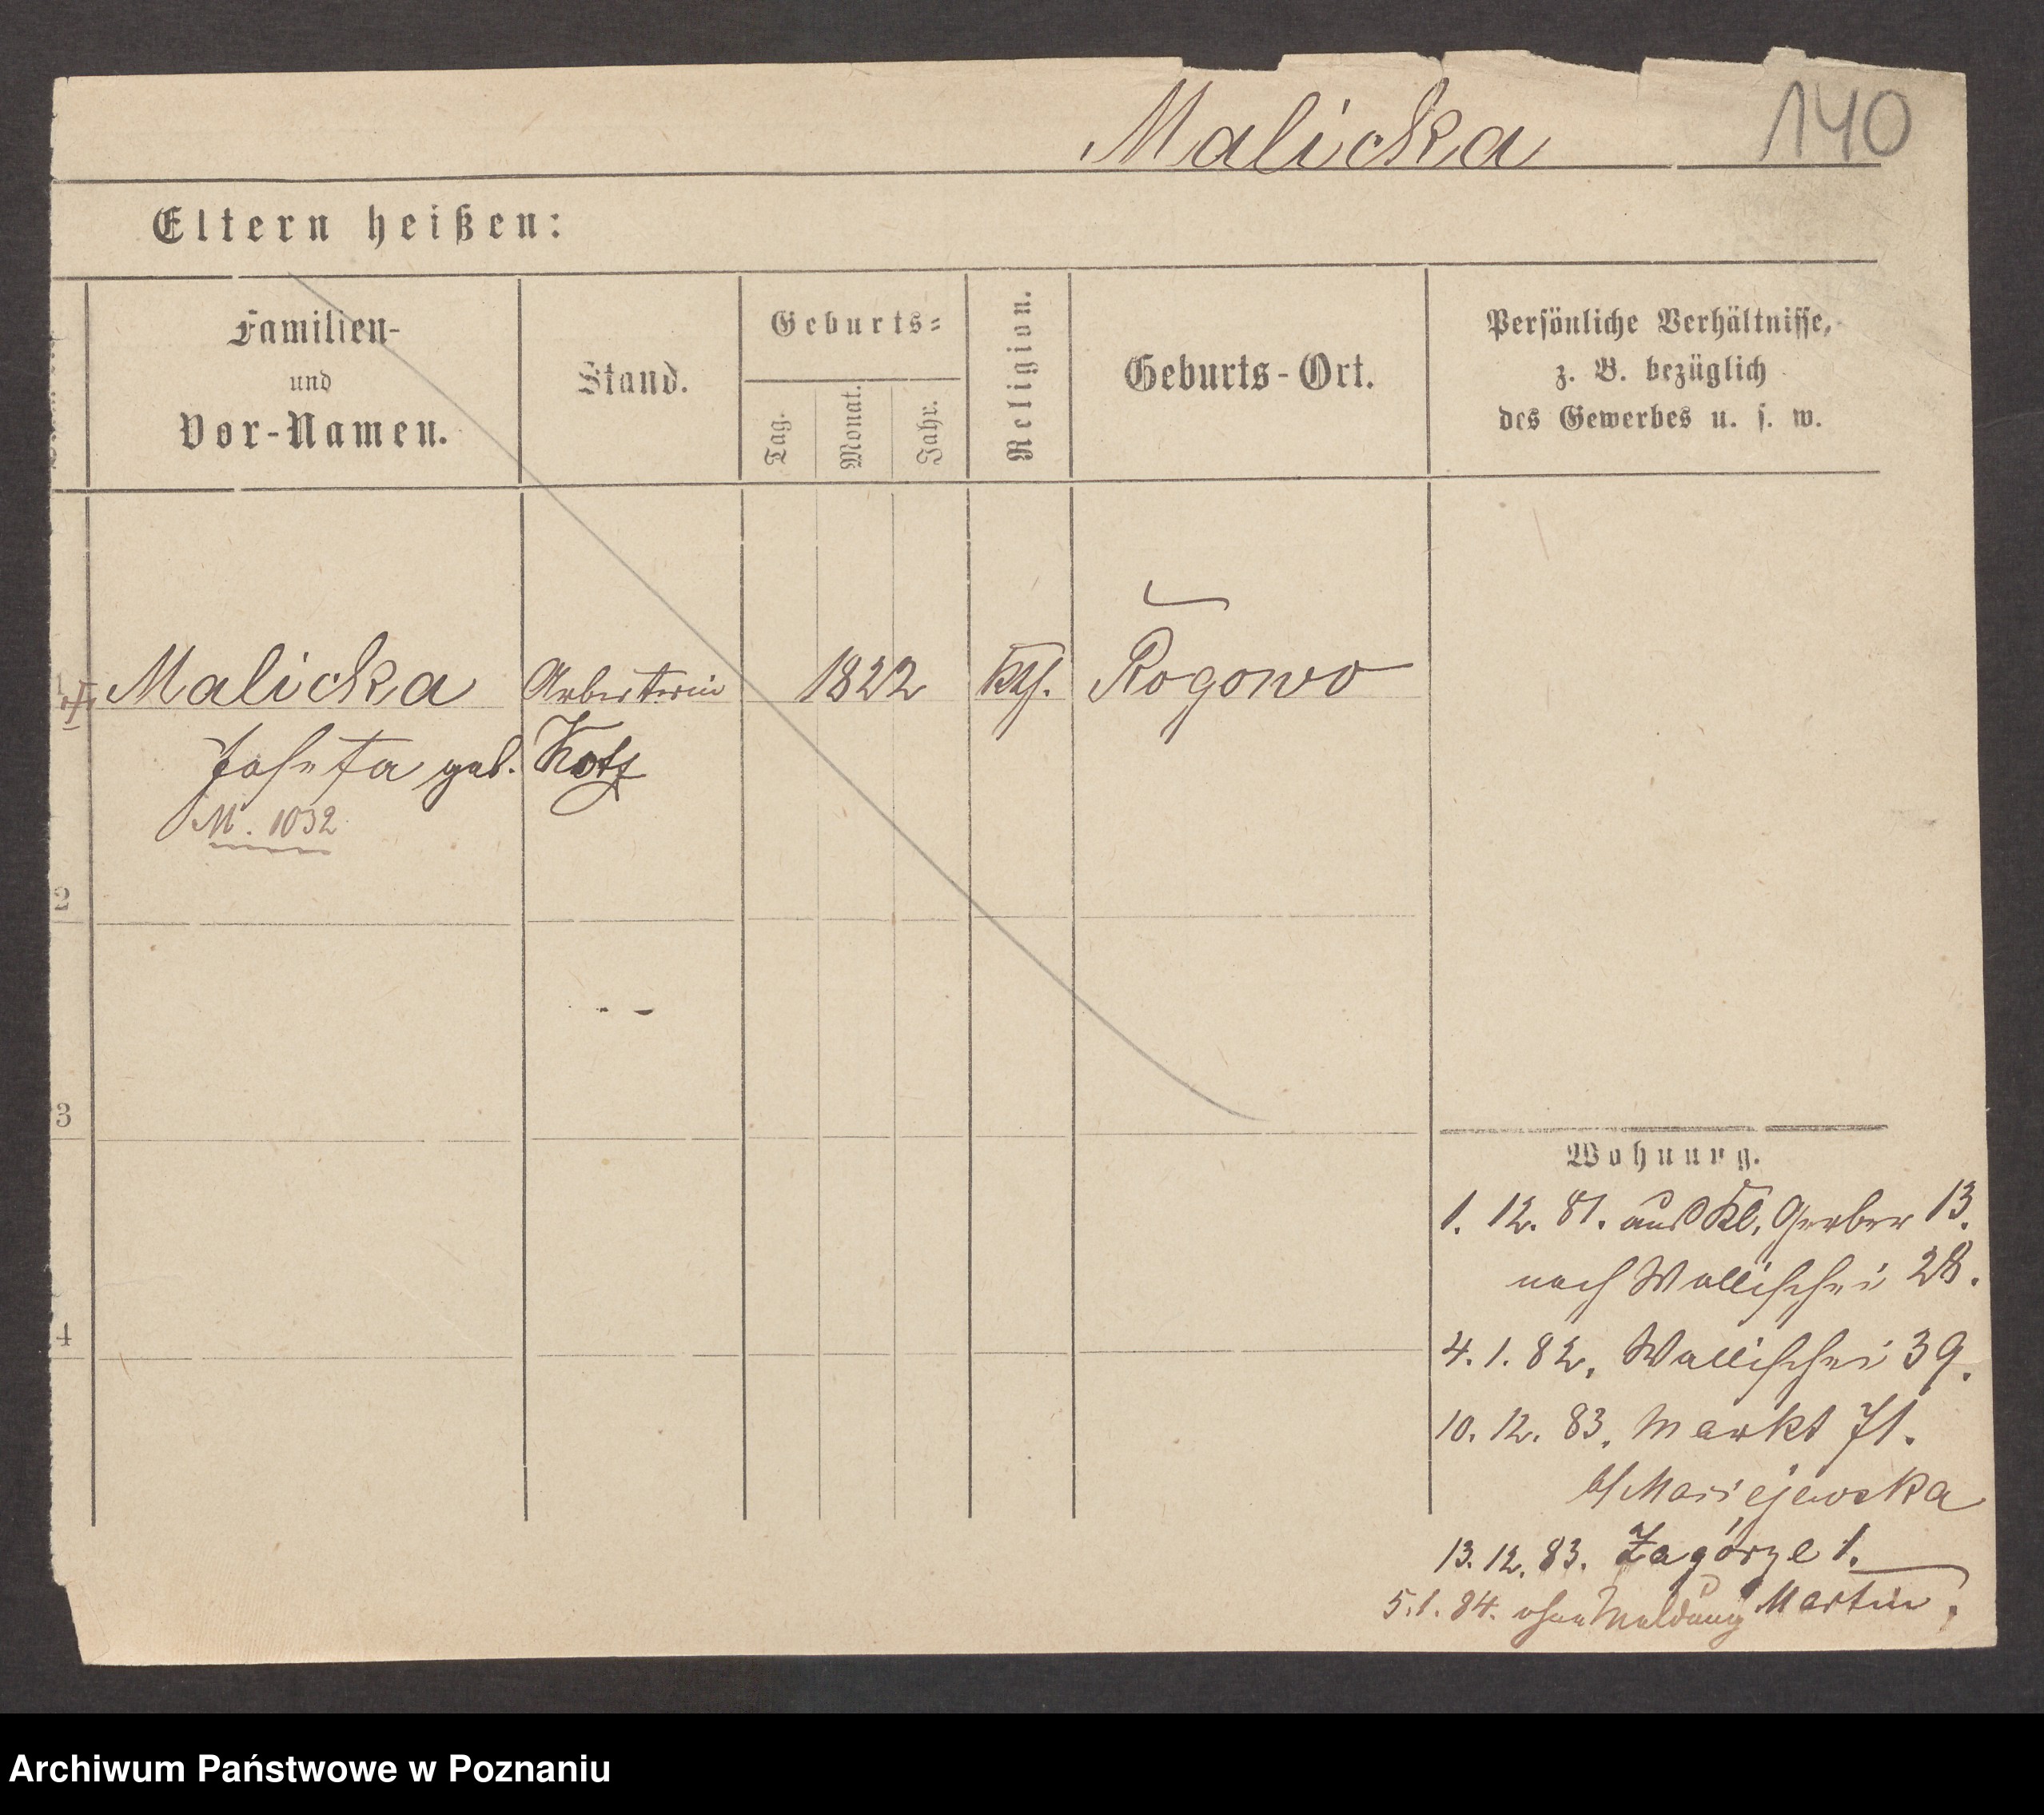 Malicka
140
Eltern heißen:
Familien-
und
Vor-Namen.
Stand.
Geburts-
Tag.
Monat.
Jahr.
Religion.
Geburts-Ort.
Persönliche Verhältnisse,
z. B. bezüglich
des Gewerbes u. s. w.
Malicka Arbeiterin 1822 kth. Rogowo
Josefa geb. Kotz
M. 1032
2
3
4
Wohnung.
1. 12. 81. aus Kl. Gerber 13.
nach Wallischei 28.
4. 1. 82. Wallischei 39.
10. 12. 83. Markt 71.
b/ Maciejewska
13. 12. 83. Zagórze 1.
5. 1. 84. ohne Meldung Martin.
Archiwum Państwowe w Poznaniu